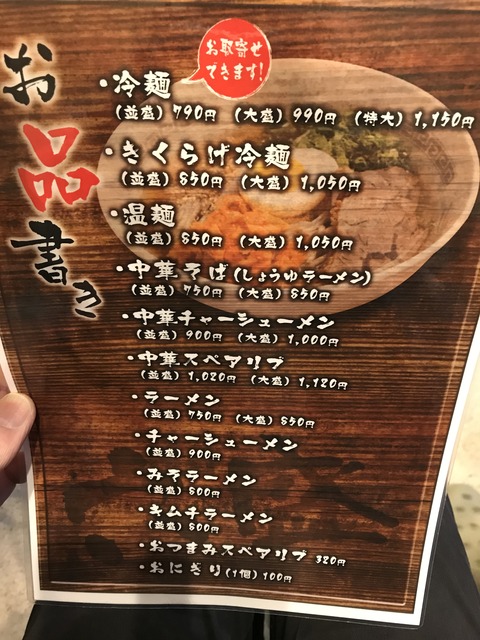 お品書き
お取寄せ
できます!
・冷麺
(並盛) 790円 (大盛) 990円 (特大) 1,150円
・きくらげ冷麺
(並盛) 850円 (大盛) 1,050円
・温麺
(並盛) 850円 (大盛) 1,050円
・中華そば(しょうゆラーメン)
(並盛) 750円 (大盛) 850円
・中華チャーシューメン
(並盛) 900円 (大盛) 1,000円
・中華スペアリブ
(並盛) 1,020円 (大盛) 1,120円
・ラーメン
(並盛) 750円 (大盛) 850円
・チャーシューメン
(並盛) 900円
・みそラーメン
(並盛) 800円
・キムチラーメン
(並盛) 800円
・おつまみスペアリブ 320円
・おにぎり(1個) 100円